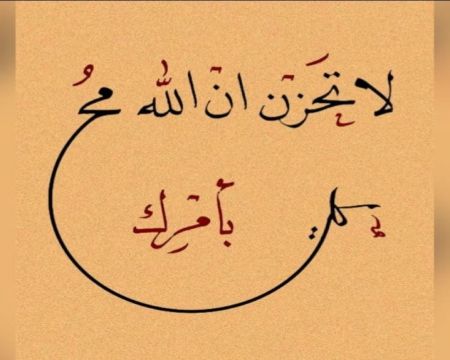 لا تحزن ان الله محيط
بأمرك